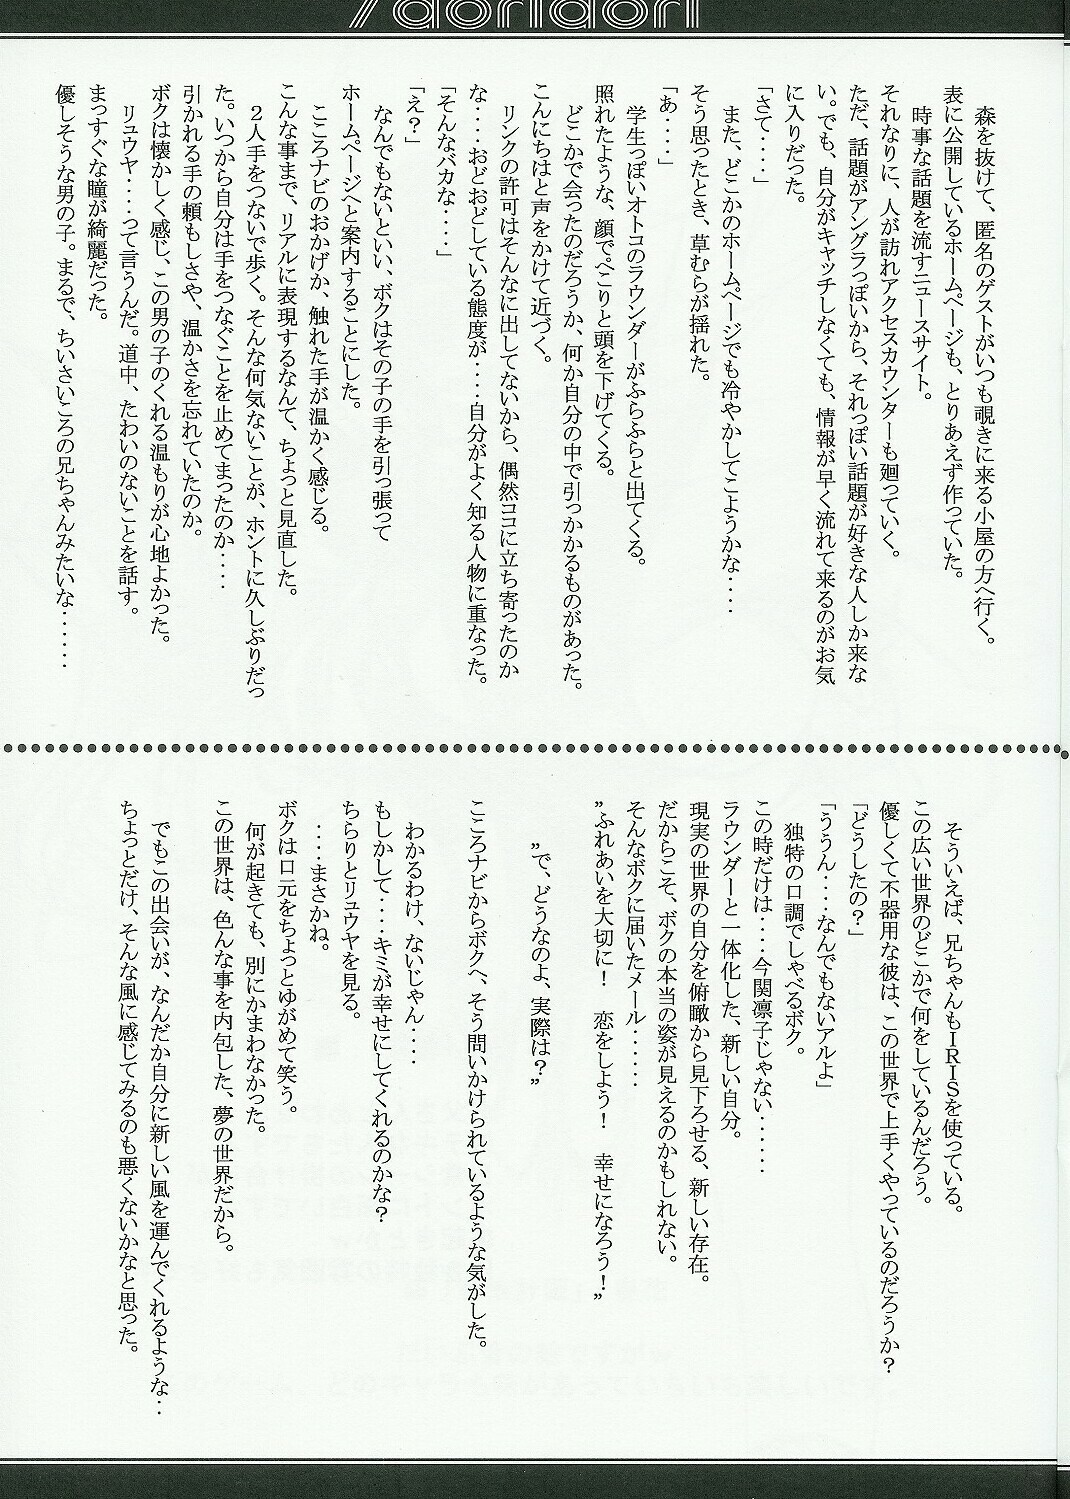 森を抜けて、匿名のゲストがいつも覗きに来る小屋の方へ行く。
表に公開しているホームページも、とりあえず作っていた。
時事な話題を流すニュースサイト。
それなりに、人が訪れアクセスカウンターも廻っていく。
ただ、話題がアングラっぽいから、それっぽい話題が好きな人しか来な
い。でも、自分がキャッチしなくても、情報が早く流れて来るのがお気
に入りだった。
「さて‥‥」
また、どこかのホームページでも冷やかしてこようかな‥‥
そう思ったとき、草むらが揺れた。
「あ‥‥」
学生っぽいオトコのラウンダーがふらふらと出てくる。
照れたような、顔でぺこりと頭を下げてくる。
どこかで会ったのだろうか、何か自分の中で引っかかるものがあった。
こんにちはと声をかけて近づく。
リンクの許可はそんなに出してないから、偶然ココに立ち寄ったのか
な‥‥おどおどしている態度が‥‥自分がよく知る人物に重なった。
「そんなバカな‥‥」
「え？」
なんでもないといい、ボクはその子の手を引っ張って
ホームページへと案内することにした。
こころナビのおかげか、触れた手が温かく感じる。
こんな事まで、リアルに表現するなんて、ちょっと見直した。
２人手をつないで歩く。そんな何気ないことが、ホントに久しぶりだっ
た。いつから自分は手をつなぐことを止めてまったのか‥‥
引かれる手の頼もしさや、温かさを忘れていたのか。
ボクは懐かしく感じ、この男の子のくれる温もりが心地よかった。
リュウヤ‥‥って言うんだ。道中、たわいのないことを話す。
まっすぐな瞳が綺麗だった。
優しそうな男の子。まるで、ちいさいころの兄ちゃんみたいな‥‥‥
そういえば、兄ちゃんもＩＲＩＳを使っている。
この広い世界のどこかで何をしているんだろう。
優しくて不器用な彼は、この世界で上手くやっているのだろうか？
「どうしたの？」
「ううん‥‥なんでもないアルよ」
独特の口調でしゃべるボク。
この時だけは‥‥今関凛子じゃない‥‥‥
ラウンダーと一体化した、新しい自分。
現実の世界の自分を俯瞰から見下ろせる、新しい存在。
だからこそ、ボクの本当の姿が見えるのかもしれない。
そんなボクに届いたメール‥‥‥
”ふれあいを大切に！　恋をしよう！　幸せになろう！”
”で、どうなのよ、実際は？”
こころナビからボクへ、そう問いかけられているような気がした。
わかるわけ、ないじゃん‥‥
もしかして‥‥キミが幸せにしてくれるのかな？
ちらりとリュウヤを見る。
‥‥まさかね。
ボクは口元をちょっとゆがめて笑う。
何が起きても、別にかまわなかった。
この世界は、色んな事を内包した、夢の世界だから。
でもこの出会いが、なんだか自分に新しい風を運んでくれるような‥
ちょっとだけ、そんな風に感じてみるのも悪くないかなと思った。